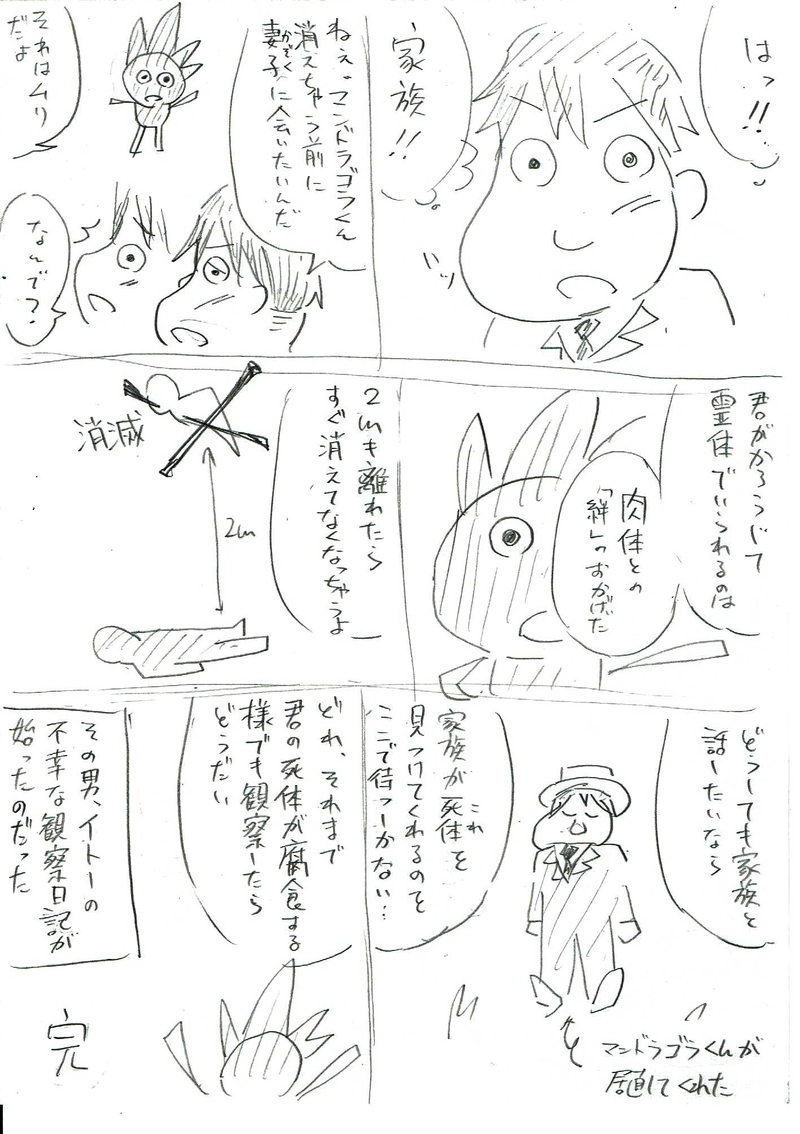 はっ!!
家族!!
ねぇ、マンドラゴラくん
消えちゃう前に
妻子に会いたいんだ
かぞく
それはムリ
だよ
なんで?
君がかろうじて
霊体でいられるのは
肉体との
「絆」のおかげだ
2mも離れたら
すぐ消えてなくなっちゃうよ
消滅
2m
どうしても家族と
話したいなら
家族が死体を
これ
見つけてくれるのを
ここで待つしかない…
マンドラゴラくんが
直してくれた
どれ、それまで
君の死体が腐食する
様でも観察したら
どうだい
その男、イトーの
不幸な観察日記が
始ったのだった
完